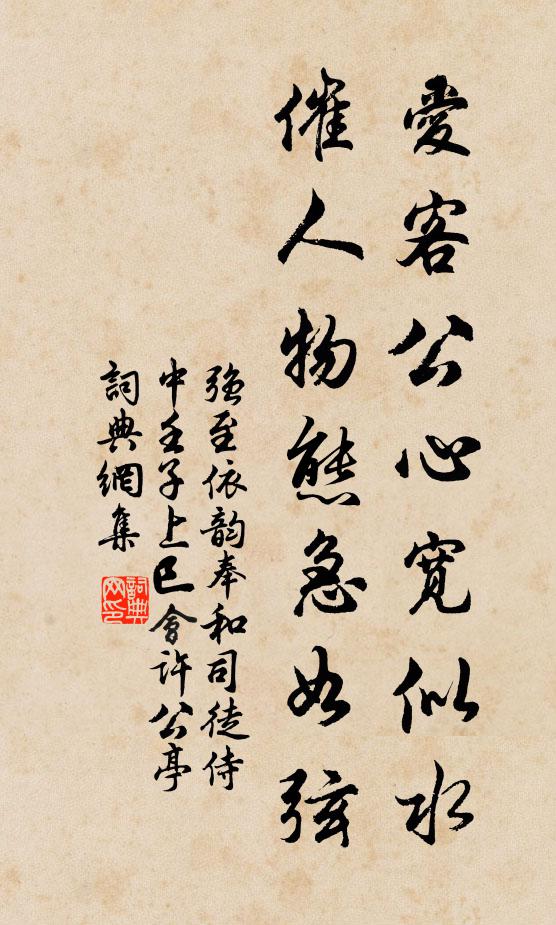 愛客公心寬似水
催人物態急如弦
強至依韵奉和司徒侍
中壬子上巳會許公亭
詞典網集
詞典网印